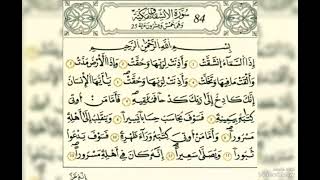 سورة الانشقاق مكية 84
وهي خمس وعشرون آية 25
بِسْمِ اللَّهِ الرَّحْمَٰنِ الرَّحِيمِ
إِذَا السَّمَاءُ انشَقَّتْ ۝ وَأَذِنَتْ لِرَبِّهَا وَحُقَّتْ ۝ وَإِذَا الْأَرْضُ مُدَّتْ ۝
وَأَلْقَتْ مَا فِيهَا وَتَخَلَّتْ ۝ وَأَذِنَتْ لِرَبِّهَا وَحُقَّتْ ۝ يَٰأَيُّهَا الْإِنسَانُ
إِنَّكَ كَادِحٌ إِلَىٰ رَبِّكَ كَدْحًا فَمُلَٰقِيهِ ۝ فَأَمَّا مَنْ أُوتِيَ
كِتَٰبَهُ بِيَمِينِهِ ۝ فَسَوْفَ يُحَاسَبُ حِسَابًا يَسِيرًا ۝ وَيَنقَلِبُ إِلَىٰ أَهْلِهِ
مَسْرُورًا ۝ وَأَمَّا مَنْ أُوتِيَ كِتَٰبَهُ وَرَاءَ ظَهْرِهِ ۝ فَسَوْفَ يَدْعُوا
ثُبُورًا ۝ وَيَصْلَىٰ سَعِيرًا ۝ إِنَّهُ كَانَ فِي أَهْلِهِ مَسْرُورًا ۝
إِنَّهُ ظَنَّ